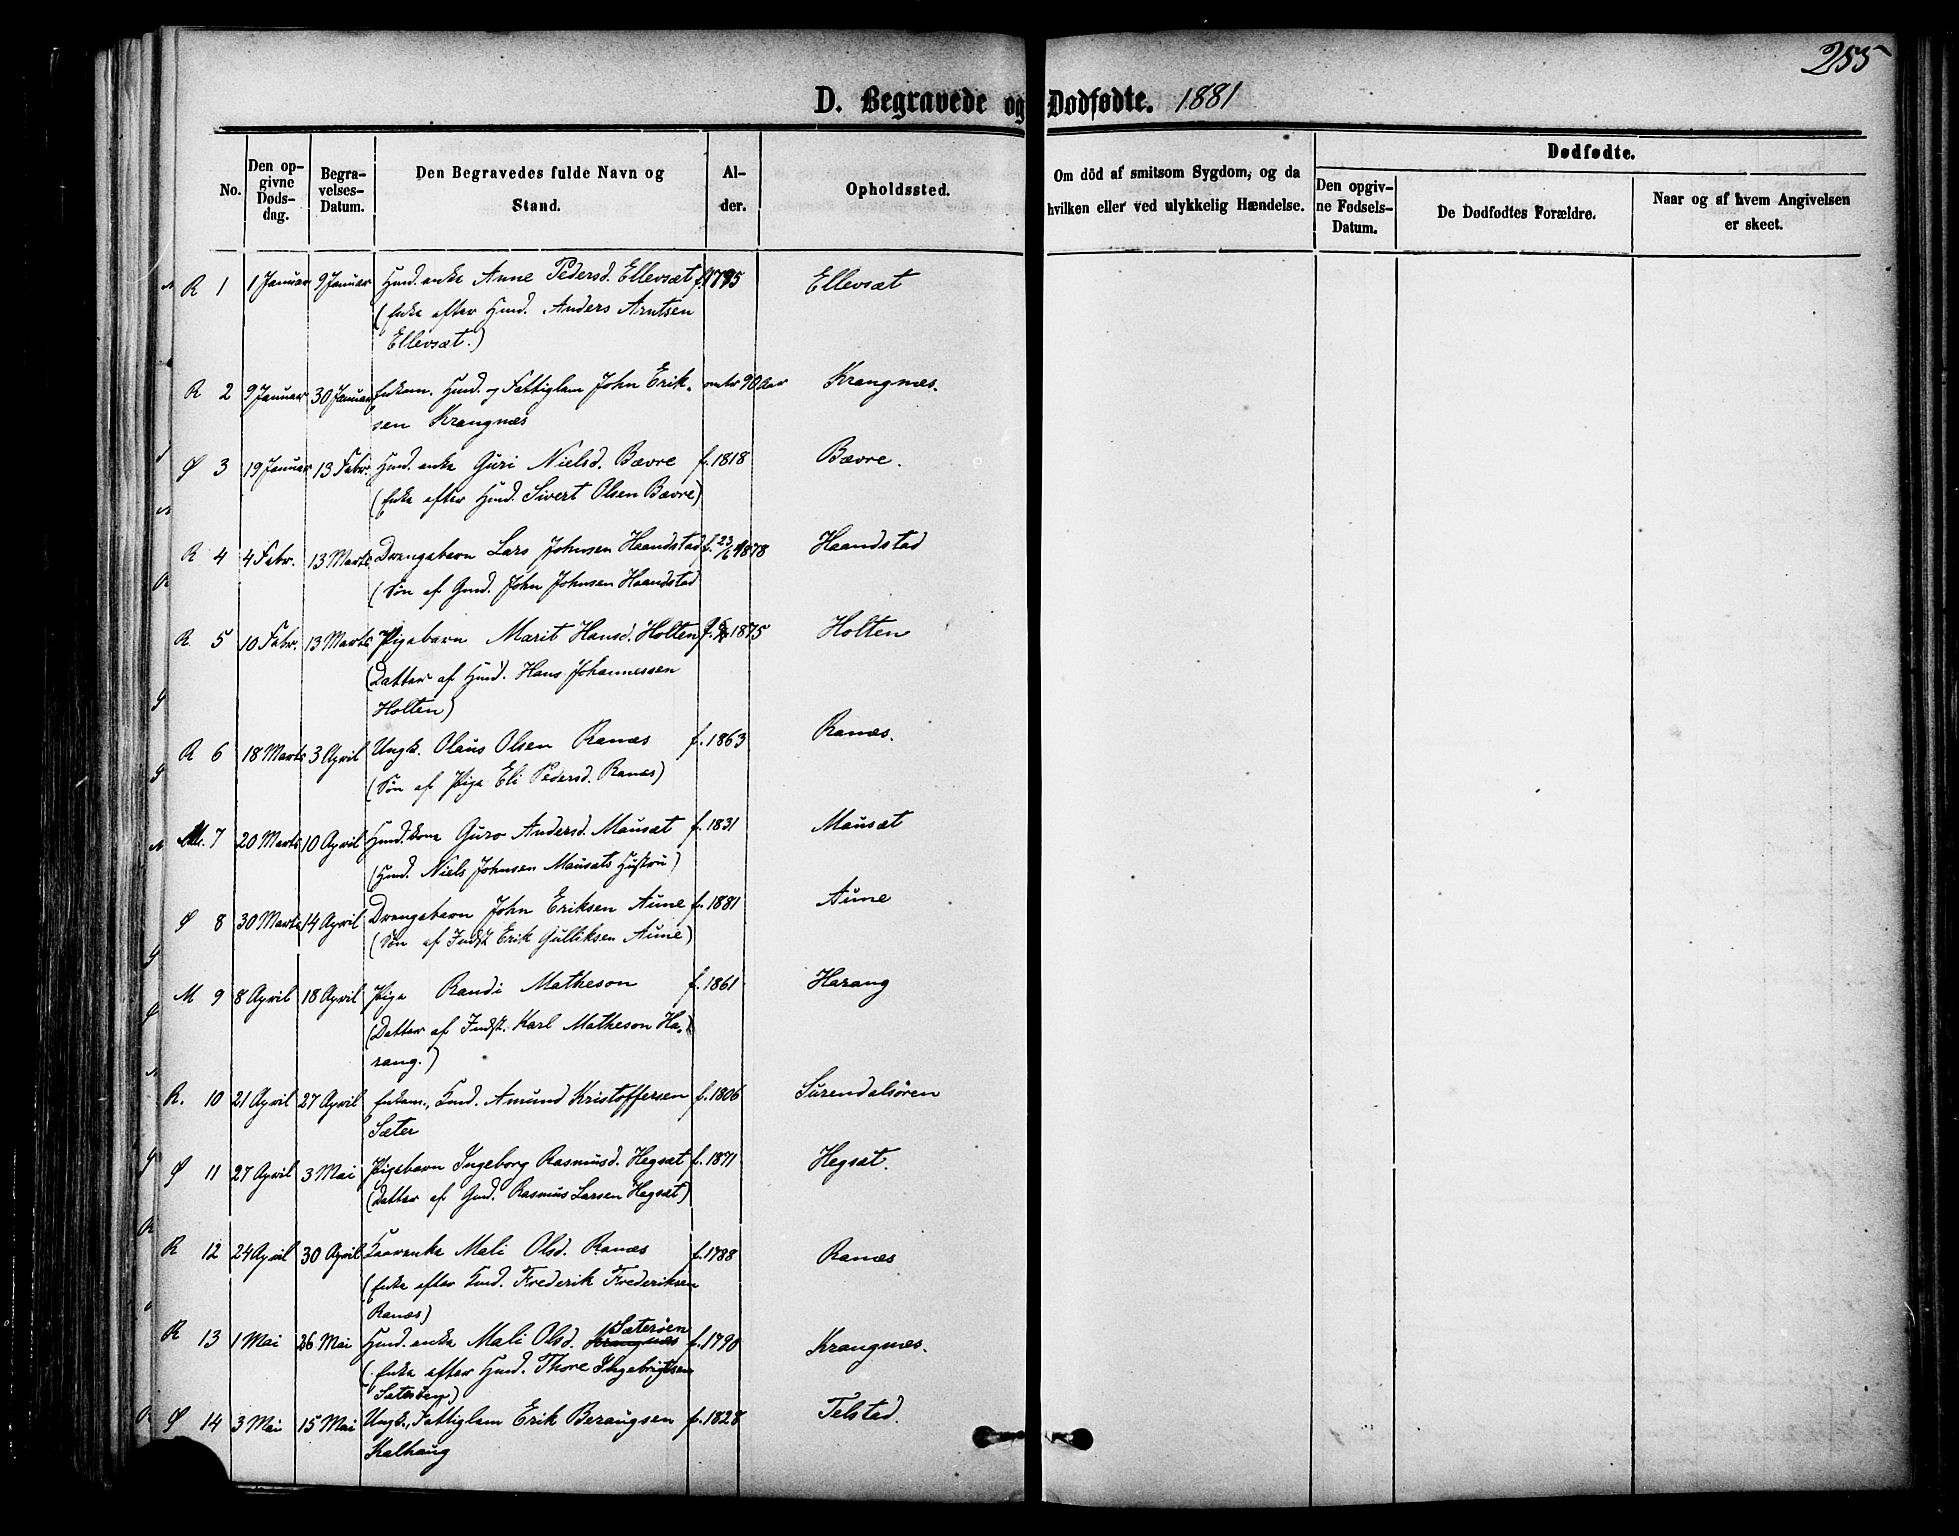 255
D. Begravede og Dødfødte. 1881
No.
Den op-
givne
Døds-
dag.
Begra-
velses-
Datum.
Den Begravedes fulde Navn og
Stand.
Al-
der.
Opholdssted.
Om död af smitsom Sygdom, og da
hvilken eller ved ulykkelig Hændelse.
Dødfødte.
Den opgiv-
ne Fødsels-
Datum.
De Dødfødtes Forældre.
Naar og af hvem Angivelsen
er skeet.
R 1 1 Januar 9 Januar Hmd. enke Anne Pedersd. Ellevsæt f. 1795 Ellevsæt
(Enke efter Hmd. Anders Arntsen
Ellevsæt.)
R 2 9 Januar 30 Januar Enkem. Hmd. og Fattiglem John Erik- omtr 90 Aar Krangnæs.
sen Krangnæs
Ø 3 19 Januar 13 Febr. Hmd. enke Guri Nielsd. Bævre f. 1818 Bævre.
(Enke efter Hmd. Sivert Olsen Bævre)
R 4 4 Febr. 13 Marts Drengebarn Lars Johnsen Haandstad f. 23/6 1878 Haandstad
(Søn af Gmd. John Johnsen Haandstad
R. 5 10 Febr. 13 Marts Pigebarn Marit Hansd. Holten 1875 Holten
(Datter af Hmd. Hans Johannessen
Holten)
R 6 18 Marts 3 April Ungk. Olaus Olsen Ranæs f. 1863 Ranæs.
(Søn af Pige Eli Pedersd. Ranæs)
M. 7 20 Marts 10 April Hmd. kone Guro Andersd. Mausæt f. 1831 Mausæt
(Hmd. Niels Johnsen Mausæts Hustru)
Ø 8 30 Marts 14 April Drengebarn John Eriksen Aune f. 1881 Aune
(Søn af Indst. Erik Gulliksen Aune)
M 9 8 April 18 April Pige Randi Matheson f. 1861 Harang
(Datter af Indst. Karl Matheson Ha-
rang.)
R. 10 21 April 27 April Enkem., Gmd. Amund Kristoffersen f. 1806 Surendalsören
Sæter
Ø 11 27 April 3 Mai Pigebarn Ingeborg Rasmusd. Hegsæt f. 1871 Hegsæt.
(Datter af Gmd. Rasmus Larsen Hegsæt)
R 12 24 April 30 April Kaarenke Mali Olsd. Ranæs f. 1788 Ranæs
(Enke efter Gmd. Frederik Frederiksen
Ranæs)
R 13 1 Mai 26 Mai Hmd. enke Mali Olsd. Krangnæs Sæterøen f. 1790 Krangnæs.
(Enke efter Hmd. Thore Ingebrigtsen
Sæterøen)
Ø 14 3 Mai 15 Mai Ungk., Fattiglem Erik Beraugsen f. 1828 Telstad.
Kalhaug